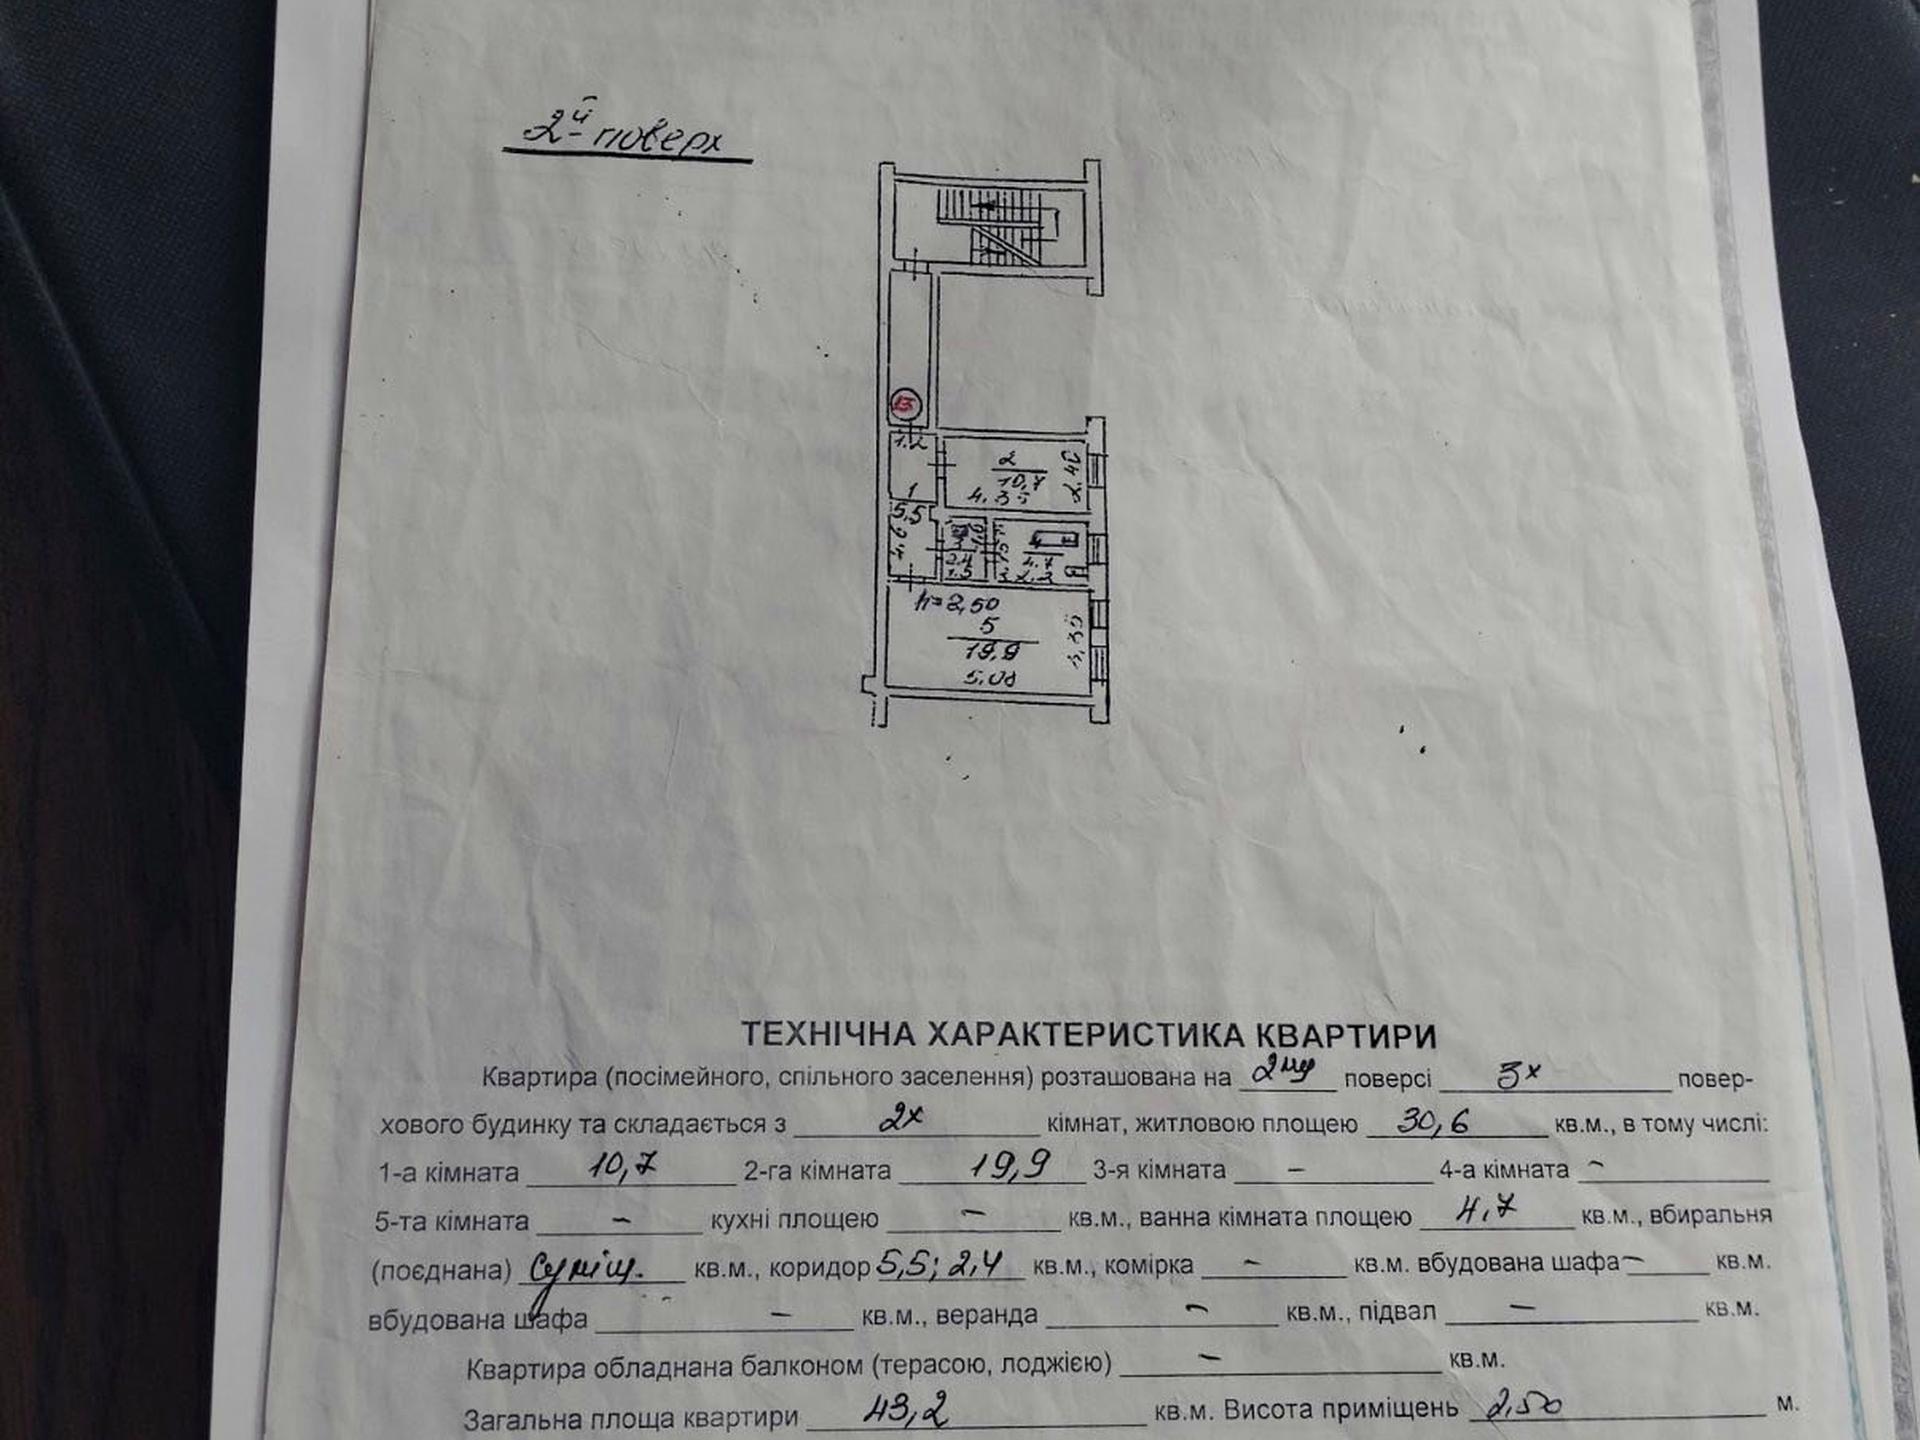 2й поверх
13
1.2
2
10,7
4.35
2.40
1
5,5
4.6
3
2.4
1.5
4
4.7
2.2
h=2,50
5
19,9
5.08
3,35
ТЕХНІЧНА ХАРАКТЕРИСТИКА КВАРТИРИ
Квартира (посімейного, спільного заселення) розташована на 2му поверсі 3х повер-
хового будинку та складається з 2х кімнат, житловою площею 30,6 кв.м., в тому числі:
1-а кімната 10,7 2-га кімната 19,9 3-я кімната – 4-а кімната –
5-та кімната – кухні площею – кв.м., ванна кімната площею 4.7 кв.м., вбиральня
(поєднана) суміщ. кв.м., коридор 5,5; 2,4 кв.м., комірка – кв.м. вбудована шафа – кв.м.
вбудована шафа – кв.м., веранда – кв.м., підвал – кв.м.
Квартира обладнана балконом (терасою, лоджією) – кв.м.
Загальна площа квартири 43,2 кв.м. Висота приміщень 2,50 м.